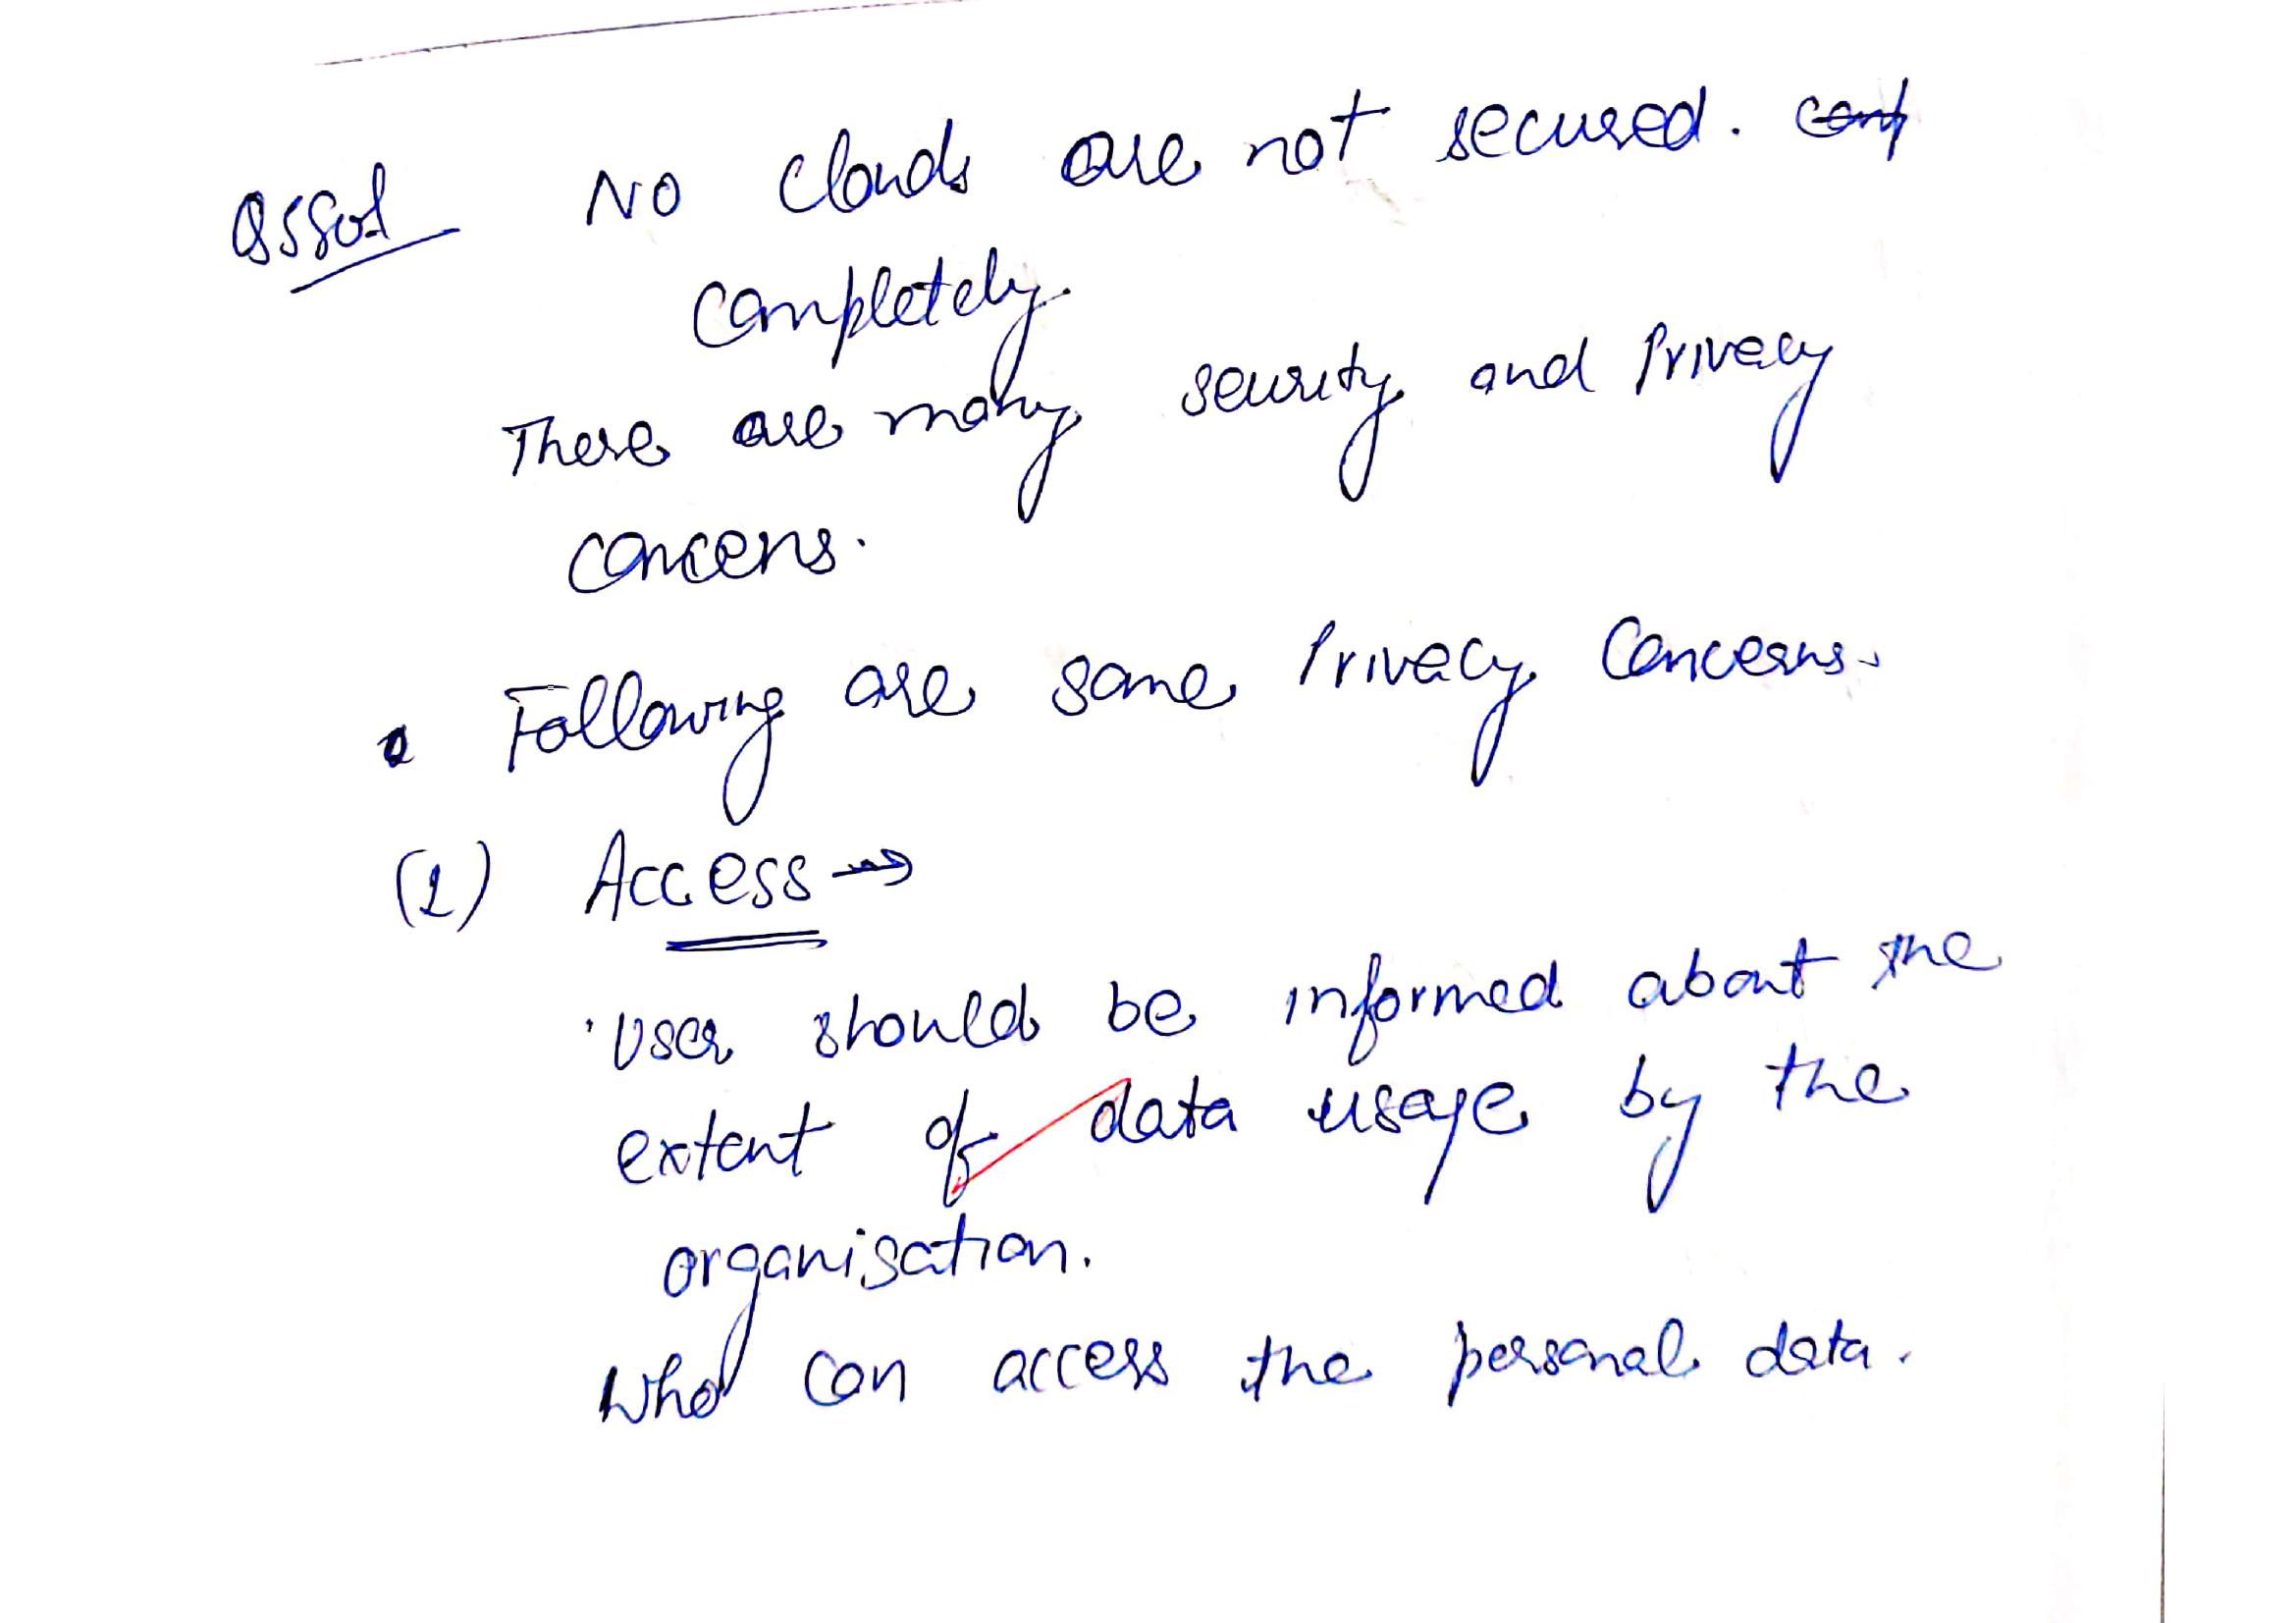 Q5 Sol No Clouds are not secured.
Completely.
There are many security and Privacy
concens.
Following are some Privacy Concerns.
(1) Access →
User should be informed about the
extent of data usage by the
organisation.
Who can access the personal data.